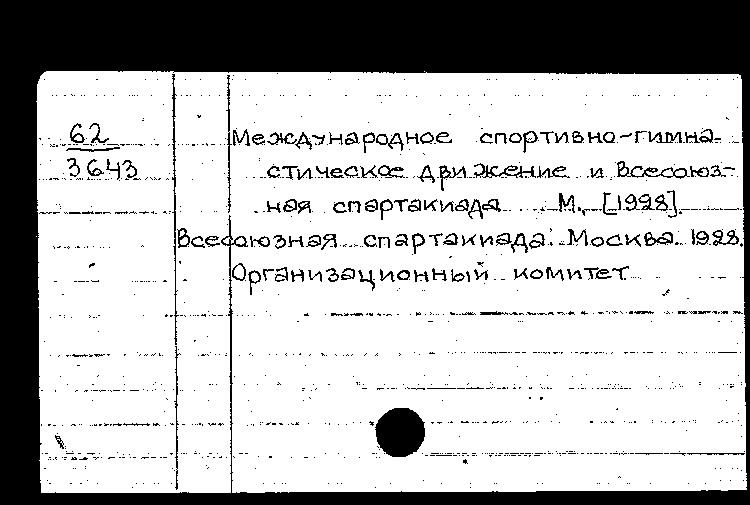 62
3643
Международное спортивно-гимна-
стическое движение и Всесоюз-
ная спартакиада М., [1928].
Всесоюзная спартакиада. Москва. 1928.
Организационный комитет